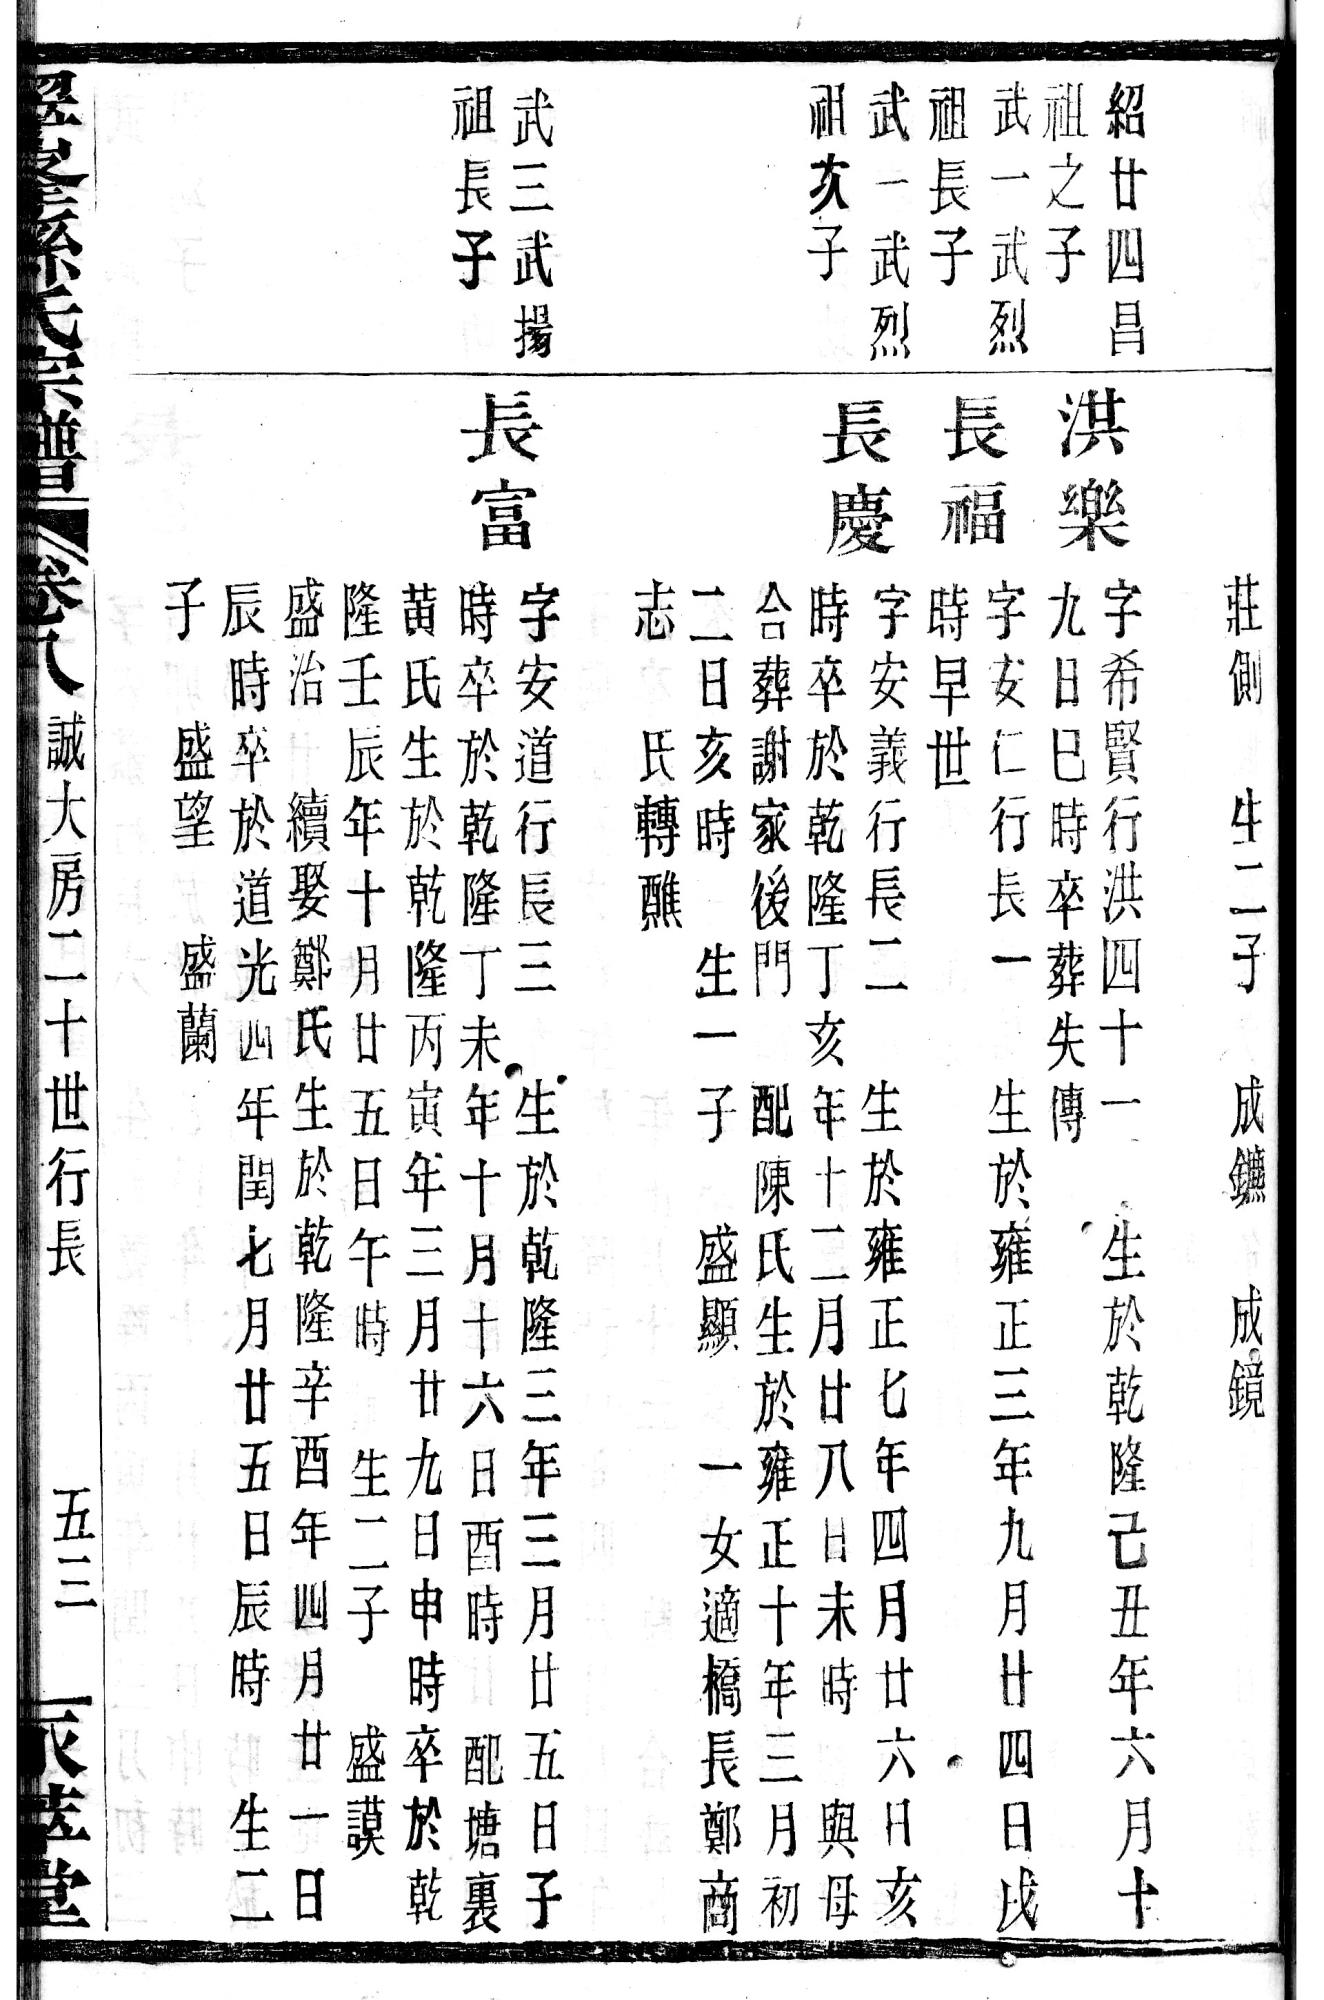 莊側　生二子　成鑣　成鏡
紹廿四昌
祖之子
洪樂
字希賢行洪四十一　生於乾隆己丑年六月十
九日巳時卒葬失傳
武一武烈
祖長子
長福
字安仁行長一　生於雍正三年九月廿四日戌
時早世
武一武烈
祖次子
長慶
字安義行長二　生於雍正七年四月廿六日亥
時卒於乾隆丁亥年十二月廿八日未時　與母
合葬謝家後門　配陳氏生於雍正十年三月初
二日亥時　生一子　盛顯　一女適橋長鄭商
志　氏轉醮
武三武揚
祖長子
長富
字安道行長三　生於乾隆三年三月廿五日子
時卒於乾隆丁未年十月十六日酉時　配塘裏
黃氏生於乾隆丙寅年三月廿九日申時卒於乾
隆壬辰年十月廿五日午時　生二子　盛謨
盛治　續娶鄭氏生於乾隆辛酉年四月廿一日
辰時卒於道光四年閏七月廿五日辰時　生二
子　盛望　盛蘭
孫氏宗譜　卷八　誠大房二十世行長　五三　萃堂